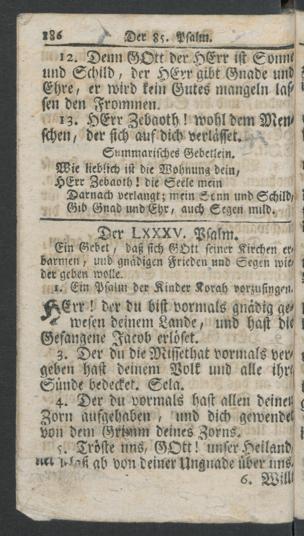 186 Der 85. Psalm.
12. Denn GOtt der HErr ist Sonne
und Schild, der HErr gibt Gnade und
Ehre, er wird kein Gutes mangeln las-
sen den Frommen.
13. HErr Zebaoth! wohl dem Men-
schen, der sich auf dich verlässet.
Summarisches Gebetlein.
Wie lieblich ist die Wohnung dein,
HErr Zebaoth! die Seele mein
Darnach verlangt; mein Sonn und Schild,
Gib Gnad und Ehr, auch Segen mild.
Der LXXXV. Psalm.
Ein Gebet, daß sich GOtt seiner Kirchen er-
barmen, und gnädigen Frieden und Segen wie-
der geben wolle.
1. Ein Psalm der Kinder Korah vorzusingen.
HErr! der du bist vormals gnädig ge-
wesen deinem Lande, und hast die
Gefangene Jacob erlöset.
3. Der du die Missethat vormals ver-
geben hast deinem Volk und alle ihre
Sünde bedecket. Sela.
4. Der du vormals hast allen deinen
Zorn aufgehaben, und dich gewendet
von dem Grimm deines Zorns.
5. Tröste uns, GOtt! unser Heiland,
laß ab von deiner Ungnade über uns.
6. Will